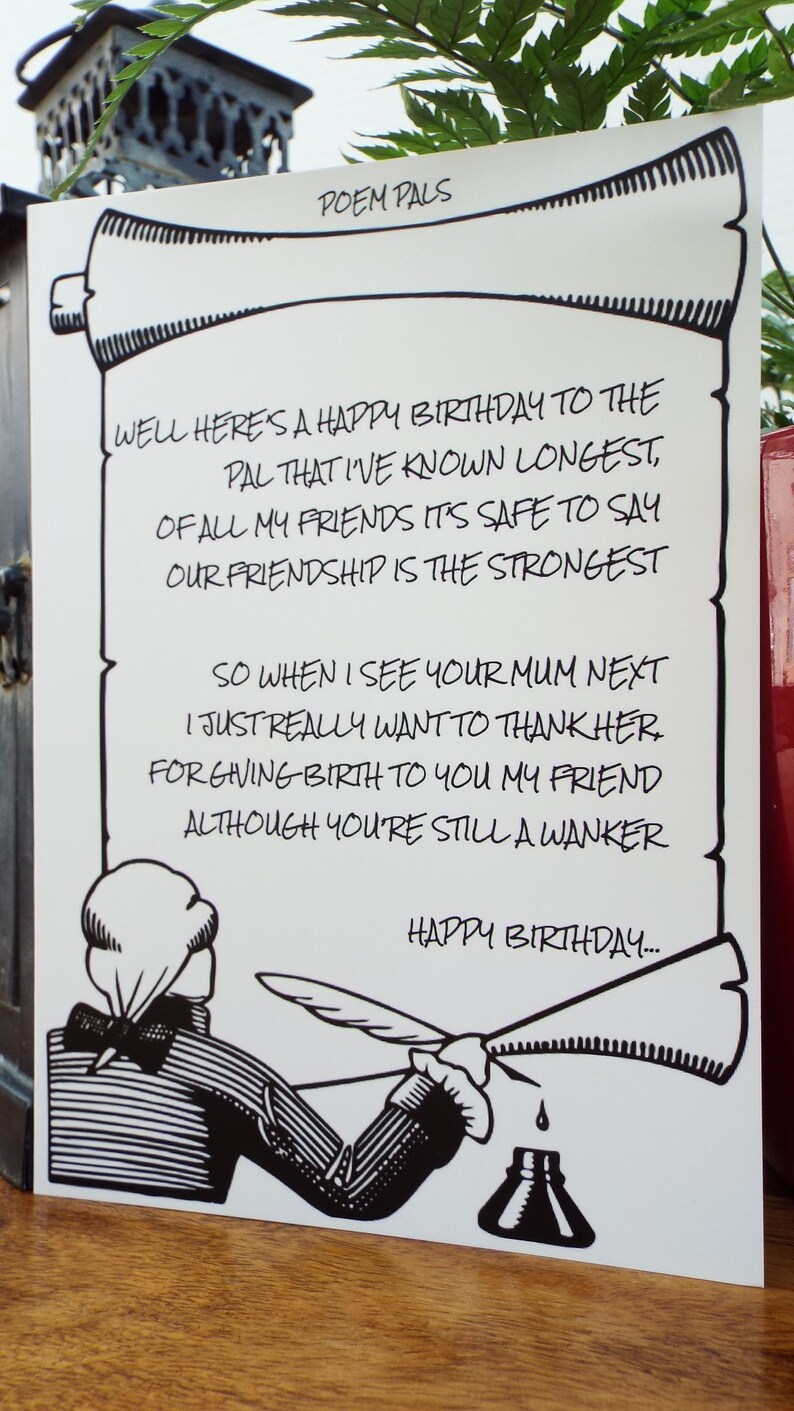 POEM PALS
WELL HERE'S A HAPPY BIRTHDAY TO THE
PAL THAT I'VE KNOWN LONGEST,
OF ALL MY FRIENDS IT'S SAFE TO SAY
OUR FRIENDSHIP IS THE STRONGEST
SO WHEN I SEE YOUR MUM NEXT
I JUST REALLY WANT TO THANK HER,
FOR GIVING BIRTH TO YOU MY FRIEND
ALTHOUGH YOU'RE STILL A WANKER
HAPPY BIRTHDAY...